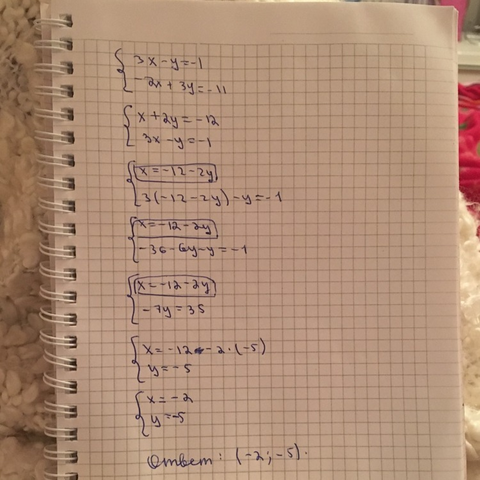 3x-y=-1
-2x+3y=-11
x+2y=-12
3x-y=-1
x=-12-2y
3(-12-2y)-y=-1
x=-12-2y
-36-6y-y=-1
x=-12-2y
-7y=35
x=-12-2·(-5)
y=-5
x=-2
y=-5
Ответ: (-2; -5).